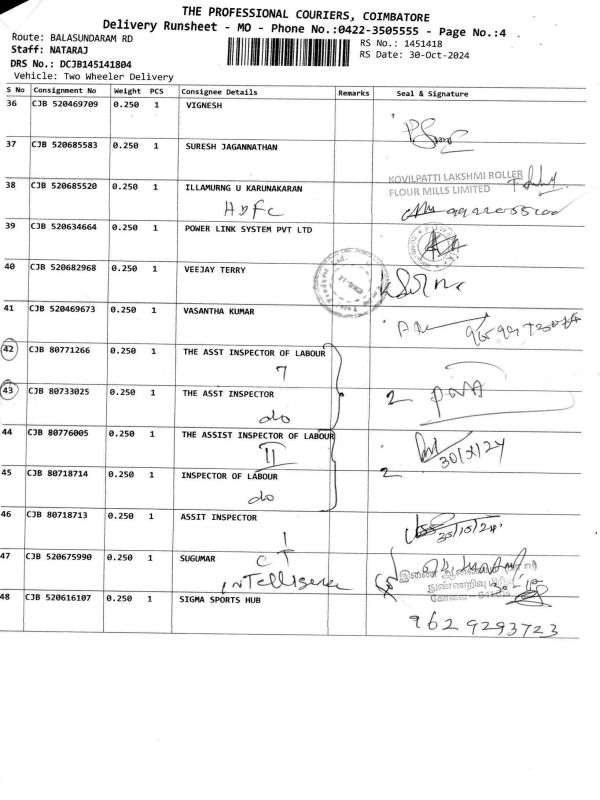 THE PROFESSIONAL COURIERS, COIMBATORE
Delivery Runsheet - MO - Phone No.:0422-3505555 - Page No.:4
Route: BALASUNDARAM RD
RS No.: 1451418
Staff: NATARAJ
RS Date: 30-Oct-2024
DRS No.: DCJB145141804
Vehicle: Two Wheeler Delivery
S No Consignment No Weight PCS Consignee Details Remarks Seal & Signature
36 CJB 520469709 0.250 1 VIGNESH
37 CJB 520685583 0.250 1 SURESH JAGANNATHAN
KOVILPATTI LAKSHMI ROLLER
FLOUR MILLS LIMITED
38 CJB 520685520 0.250 1 ILLAMURNG U KARUNAKARAN
HDFC
39 CJB 520634664 0.250 1 POWER LINK SYSTEM PVT LTD
40 CJB 520682968 0.250 1 VEEJAY TERRY
41 CJB 520469673 0.250 1 VASANTHA KUMAR
42 CJB 80771266 0.250 1 THE ASST INSPECTOR OF LABOUR
43 CJB 80733025 0.250 1 THE ASST INSPECTOR
do 2
44 CJB 80776005 0.250 1 THE ASSIST INSPECTOR OF LABOUR
II
45 CJB 80718714 0.250 1 INSPECTOR OF LABOUR 2
do
46 CJB 80718713 0.250 1 ASSIT INSPECTOR
1
47 CJB 520675990 0.250 1 SUGUMAR
CT
intelligence
48 CJB 520616107 0.250 1 SIGMA SPORTS HUB
9629293723